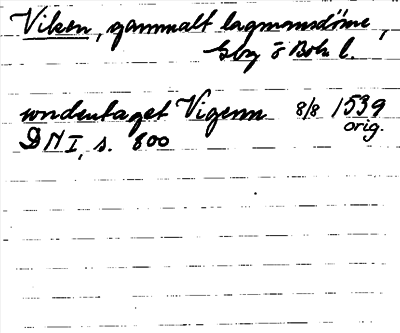 Viken, gammalt lagmansdöme,
Gbg o Boh l.
undentaget Vigenn 8/8 1539
orig.
DN I, s. 800